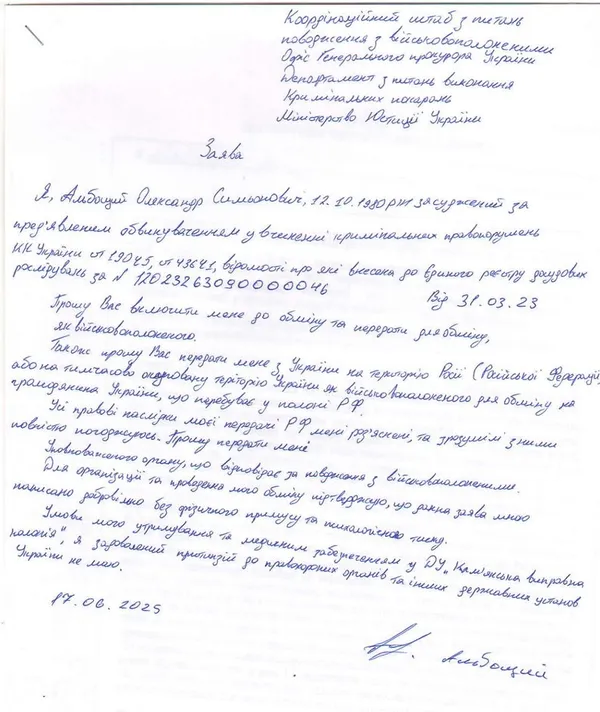 Координаційний штаб з питань
поводження з військовополоненими
Офіс Генерального прокурора України
Департамент з питань виконання
Кримінальних покарань
Міністерство Юстиції України
Заява
Я, Амбоцший Олександр Симьонович, 12.10.1980 рн засуджений за
пред'явленим обвинуваченням у вчиненні кримінальних правопорушень
КК України ст 190ч5, ст 436ч1, відомості про які внесена до Єдиного реєстру досудових
розслідувань за N 12023263090000046 Від 31.03.23
Прошу Вас включити мене до обміну та передати для обміну,
як військовополоненого.
Також прошу Вас передати мене з України на територію Росії (Російської Федерації)
або на тимчасово окуповану територію України як військовополоненого для обміну на
громадянина України, що перебуває у полоні РФ.
Усі правові наслідки моєї передачі РФ мені роз'яснені, та зрозумілі з ними
повністю погоджуюсь. Прошу передати мене
Уповноваженого органу, що відповідає за поводження з військовополоненими.
Для організації та проведення мого обміну підтверджую, що данна заява мною
написано добровільно без фізичного примусу та психологісного тиску.
Умови мого утримування та медичним забезпеченням у ДУ „Кам'янська виправна
колонія", я задоволений притензій до правоохороних органів та інших державних установ
України не маю.
17.06.2025
Альбоцший